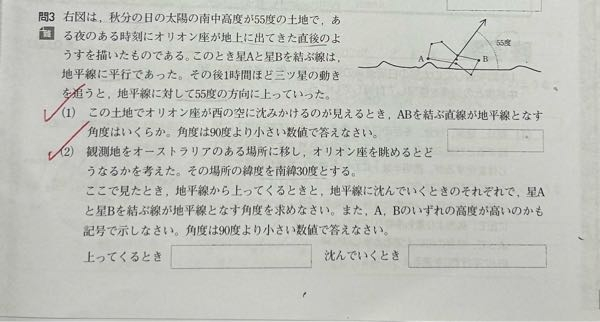 問3 右図は，秋分の日の太陽の南中高度が55度の土地で，あ
る夜のある時刻にオリオン座が地上に出てきた直後のよ
うすを描いたものである。このとき星Aと星Bを結ぶ線は，
地平線に平行であった。その後1時間ほど三ツ星の動き
を追うと，地平線に対して55度の方向に上っていった。
55度
A
B
(1) この土地でオリオン座が西の空に沈みかけるのが見えるとき，ABを結ぶ直線が地平線となす
角度はいくらか。角度は90度より小さい数値で答えなさい。
(2) 観測地をオーストラリアのある場所に移し，オリオン座を眺めるとど
うなるかを考えた。その場所の緯度を南緯30度とする。
ここで見たとき，地平線から上ってくるときと，地平線に沈んでいくときのそれぞれで，星A
と星Bを結ぶ線が地平線となす角度を求めなさい。また，A，Bのいずれの高度が高いのかも
記号で示しなさい。角度は90度より小さい数値で答えなさい。
上ってくるとき 沈んでいくとき